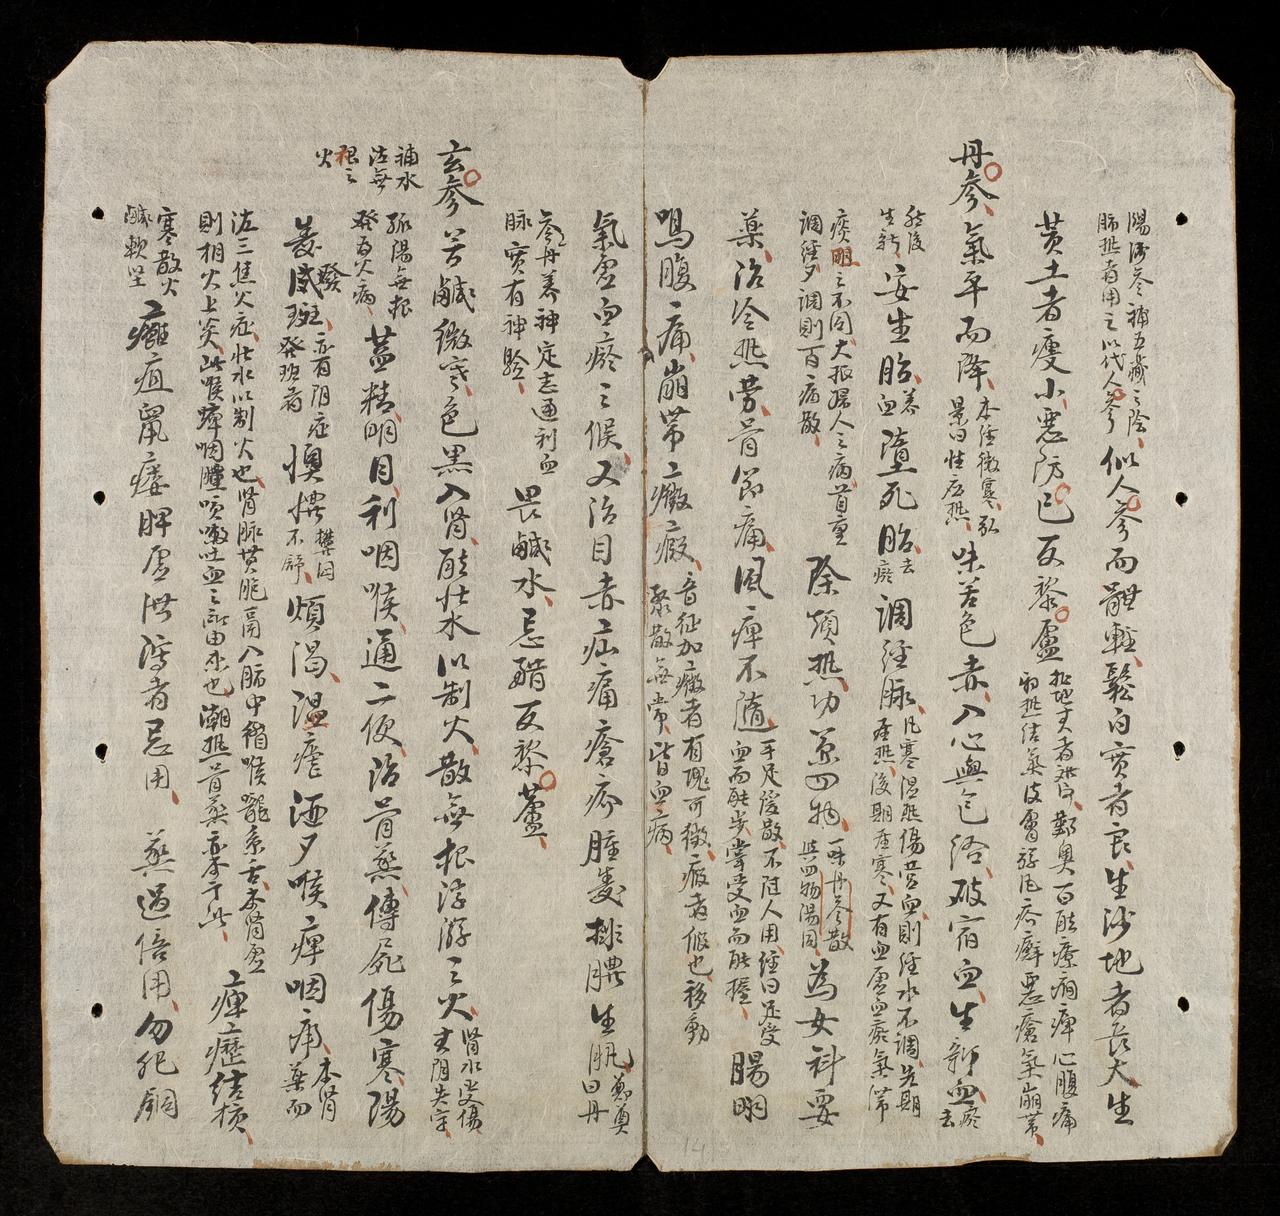 陽沙參補五臟之陰
肺熱者用之以代人參
似人參而體輕鬆白實者良生沙地者長大生
黃土者瘦小惡防己反藜蘆
鄭奠一曰能療癇痺心腹痛
邪熱結氣皮膚游風疥癬惡瘡氣崩帶
丹參氣平而降
本經微寒弘
景曰性應熱
味苦色赤入心與包絡破宿血生新血
瘀
去
然後
生新
安生胎
養
血
墮死胎
去
瘀
調經脉
風寒濕熱傷營血則經水不調先期
屬熱後期屬寒又有血虛血瘀氣滯
痰阻之不同大抵婦人之病首重
調經夕調則百病散
除煩熱功兼四物
一味丹參散
與四物湯同
為女科要
藥治冷熱勞骨節痛風痺不隨
手足緩散不隨人用經曰足受
血而能步掌受血而能握
腸
鳴腹痛崩帶癥瘕
音征加癥者有塊可徵瘕者假也移動
聚散無常皆血病
氣虛血瘀之候又治目赤疝痛瘡疥腫毒排膿生肌
鄭奠
曰丹
參丹養神定志通利血
脉實有神驗
畏鹹水忌醋反藜蘆
玄參苦鹹微寒色黑入腎能壯水以制火散無根浮游之火
腎水受傷
真陰失守
補水
治無
根之
火
孤陽無根
發為火病
益精明目利咽喉通二便治骨蒸傳屍傷寒陽
毒發斑
亦有陰症
發斑者
懊憹
煩悶
不舒
煩渴溫瘧洒夕喉痺咽痛
本腎
藥而
治三焦火症壯水以制火也腎脉貫肝膈入肺中循喉嚨系舌本腎虛
則相火上炎此喉痺咽腫咳嗽吐血之所由來也潮熱骨蒸亦于此
瘰癧結核
寒散火
鹹軟堅
癰疽鼠瘻脾虛泄瀉者忌用 蒸過焙用勿犯銅